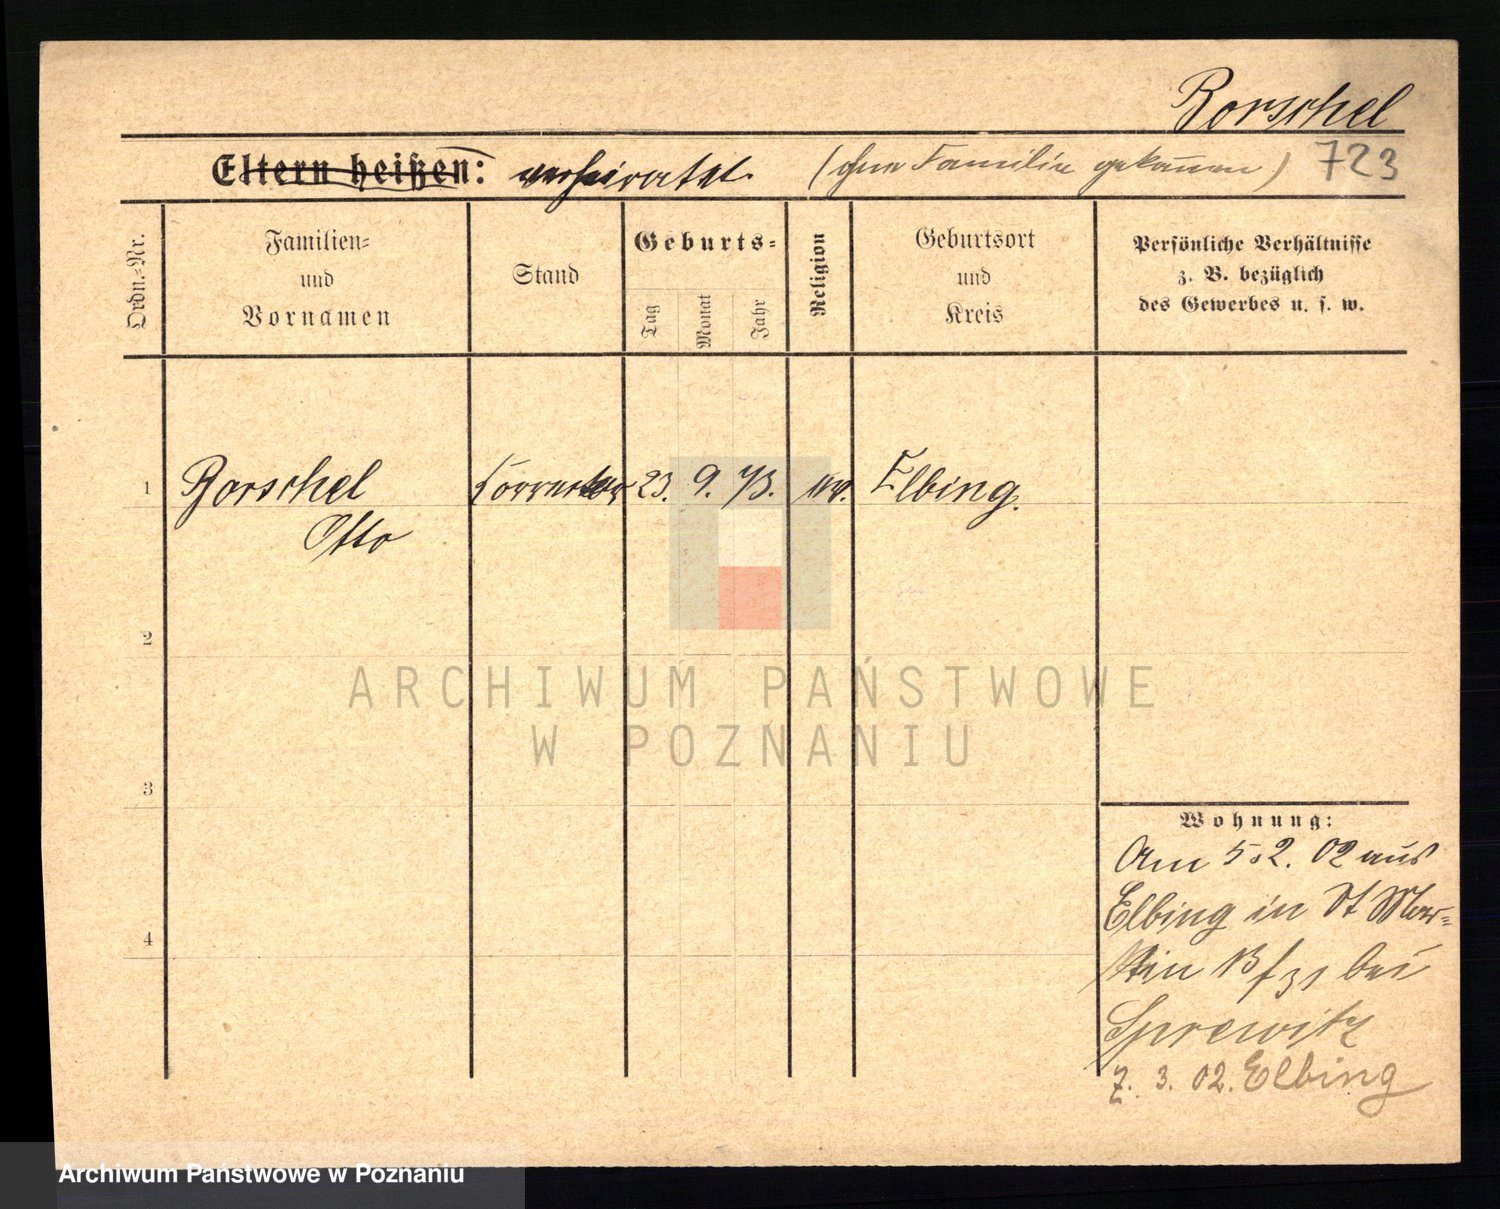 Borschel
Eltern heißen: verheiratet. (ohne Familie gekommen) 723
Ordn.-Nr.
Familien-
und
Vornamen
Stand
Geburts-
Tag
Monat
Jahr
Religion
Geburtsort
und
Kreis
Persönliche Verhältnisse
z. B. bezüglich
des Gewerbes u. s. w.
1 Borschel 23. 9. 73. ev. Elbing.
Otto
2
3
4
Wohnung:
Am 5.2. 02 aus
Elbing in St Mar-
tin bei
Sprewitz
7. 3. 02. Elbing
ARCHIWUM PAŃSTWOWE
W POZNANIU
Archiwum Państwowe w Poznaniu